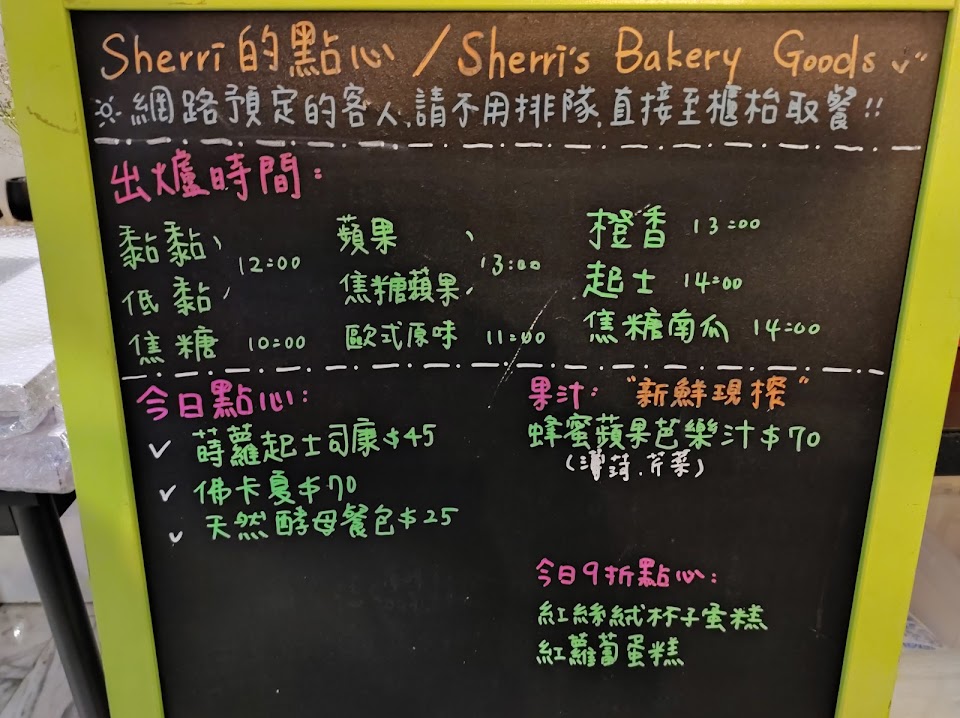 Sherri的點心/Sherri's Bakery Goods
網路預定的客人,請不用排隊,直接至櫃枱取餐!!
出爐時間:
黏黏、
低黏、
12:00
焦糖 10:00
蘋果、
焦糖蘋果、
13:00
歐式原味 11:00
橙香 13:00
起士 14:00
焦糖南瓜 14:00
今日點心:
蒔蘿起士司康$45
佛卡夏$70
天然酵母餐包$25
果汁: "新鮮現榨"
蜂蜜蘋果芭樂汁$70
(薄荷.芹菜)
今日9折點心:
紅絲絨杯子蛋糕
紅蘿蔔蛋糕